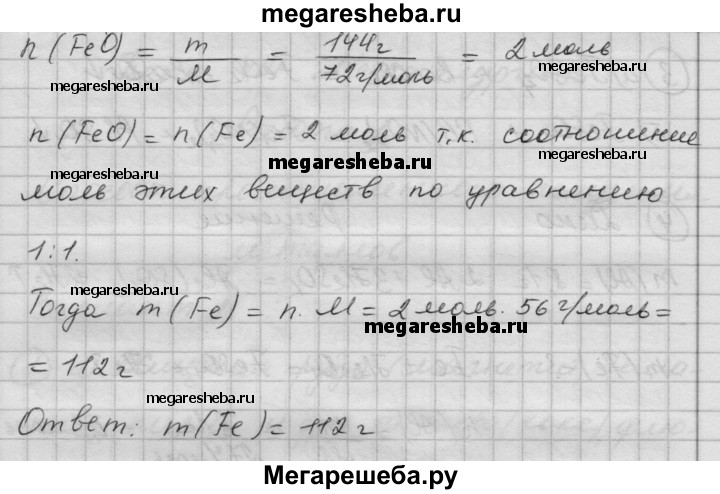 megaresheba.ru
n (FeO) = m/M = 144г/72г/моль = 2 моль
megaresheba.ru megaresheba.ru
n (FeO) = n (Fe) = 2 моль т.к. соотношение
megaresheba.ru megaresheba.ru
моль этих веществ по уравнению
1:1.
megaresheba.ru
Тогда m (Fe) = n. M = 2 моль. 56 г/моль =
megaresheba.ru
= 112 г
megaresheba.ru
Ответ: m (Fe) = 112 г
Мегарешеба.ру